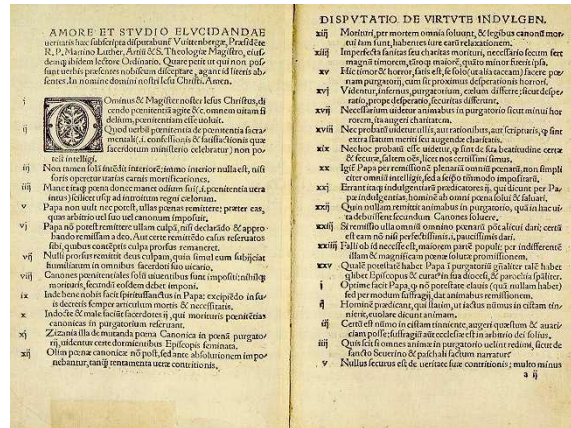 AMORE ET STVDIO ELVCIDANDAE
ueritatis hæc subscripta disputabunt Vuittenbergæ, Præsidēte
R. P. Martino Luther, Artiū & S. Theologiæ Magistro, eiusdemq̃ ibidem lectore Ordinario. Quare petit ut qui non possunt uerbis præsentes nobiscum disceptare, agant id literis absentes. In nomine domini nostri Iesu Christi. Amen.
i DOminus & Magister noster Iesus Christus, dicendo pœnitentiā agite &c. omnem uitam fidelium, pœnitentiam esse uoluit.
ij Quod uerbū pœnitentia de pœnitentia sacramentali (.i. confessionis & satisfactionis quæ sacerdotum ministerio celebratur) non potest intelligi.
iij Non tamen solā intēdit interiorē; immo interior nulla est, nisi
foris operetur uarias carnis mortificationes.
iiij Manet itaq̃ pœna donec manet odium sui (.i. pœnitentia uera
intus) scilicet usq̃ ad introitum regni cælorum.
v Papa non uult nec potest, ullas pœnas remittere; præter eas,
quas arbitrio uel suo uel canonum imposuit.
vj Papa nō potest remittere ullam culpā, nisi declarādo & approbando remissam a deo. Aut certe remittēdo casus reseruatos
sibi, quibus contēptis culpa prorsus remaneret.
vij Nulli prorsus remittit deus culpam, quin simul eum subijciat
humiliatum in omnibus sacerdoti suo uicario.
viij Canones pœnitentiales solū uiuentibus sunt impositi; nihilq̃
morituris, secundū eosdem debet imponi.
ix Inde bene nobis facit spiritussanctus in Papa: excipiēdo in suis decretis semper articulum mortis & necessitatis.
x Indocte & male faciūt sacerdotes ij, qui morituris pœnitētias
canonicas in purgatorium reseruant.
xj Zizania illa de mutanda pœna Canonica in pœnā purgatorij, uidentur certe dormientibus Episcopis seminata.
xij Olim pœnæ canonicæ nō post, sed ante absolutionem imponebantur, tanq̃ tentamenta ueræ contritionis.
DISPVTATIO DE VIRTVTE INDVLGEN.
xiij Morituri, per mortem omnia soluunt, & legibus canonū mortui iam sunt, habentes iure earū relaxationem.
xiiij Imperfecta sanitas seu charitas morituri, necessario secum fert
magnū timorem, tātoq̃ maiorē, quāto minor fuerit ipsa.
xv Hic timor & horror, satis est, se solo (ut alia taceam) facere pœnam purgatorij, cum sit proximus desperationis horrori.
xvj Videntur, infernus, purgatorium, cælum differre; sicut desperatio, prope desperatio, securitas differunt.
xvij Necessarium uidetur animabus in purgatorio sicut minui horrorem, ita augeri charitatem.
xviij Nec probatū uidetur ullis, aut rationibus, aut scripturis, q̃ sint
extra statum meriti seu augendæ charitatis.
xix Nec hoc probatū esse uidetur, q̃ sint de sua beatitudine certæ
& securæ, saltem oēs, licet nos certissimi simus.
xx Igit̃ Papa per remissionē plenariā omniū pœnarū, non simpliciter omniū intelligit, sed a seipso tātummodo impositarū.
xxj Errant itaq̃ indulgentiarū prædicatores ij, qui dicunt per Papæ indulgentias, hominē ab omni pœna solui & saluari.
xxij Quin nullam remittit animabus in purgatorio, quā in hac uita debuissent secundum Canones soluere.
xxiij Si remissio ulla omniū omnino pœnarū pōt alicui dari; certū
est eam nō nisi perfectissimis .i. paucissimis dari.
xxiiij Falli ob id necesse est, maiorem partē populi: per indifferentē
illam & magnificam pœnæ solutæ promissionem.
xxv Qualē potestatē habet Papa ī purgatoriū gñaliter talē habet
q̃libet Episcopus & curatꝰ in sua diocesi, & parochia spāliter.
i Optime facit Papa, q̃ nō potestate clauis (quā nullam habet)
sed per modum suffragij, dat animabus remissionem.
ij Hominē prædicant, qui statim, ut iactus nūmus in cistam tinnierit, euolare dicunt animam.
iij Certū est nūmo in cistam tinniente, augeri quæstum & auariciam posse; suffragiū aūt ecclesiæ est in arbitrio dei solius.
iiij Quis scit si omnes animæ in purgatorio uelint redimi, sicut de
sancto Seuerino & paschali factum narratur.
v Nullus securus est de ueritate suæ contritionis; multo minus
a ij